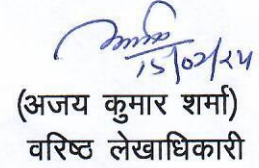 15/02/24
(अजय कुमार शर्मा)
वरिष्ठ लेखाधिकारी